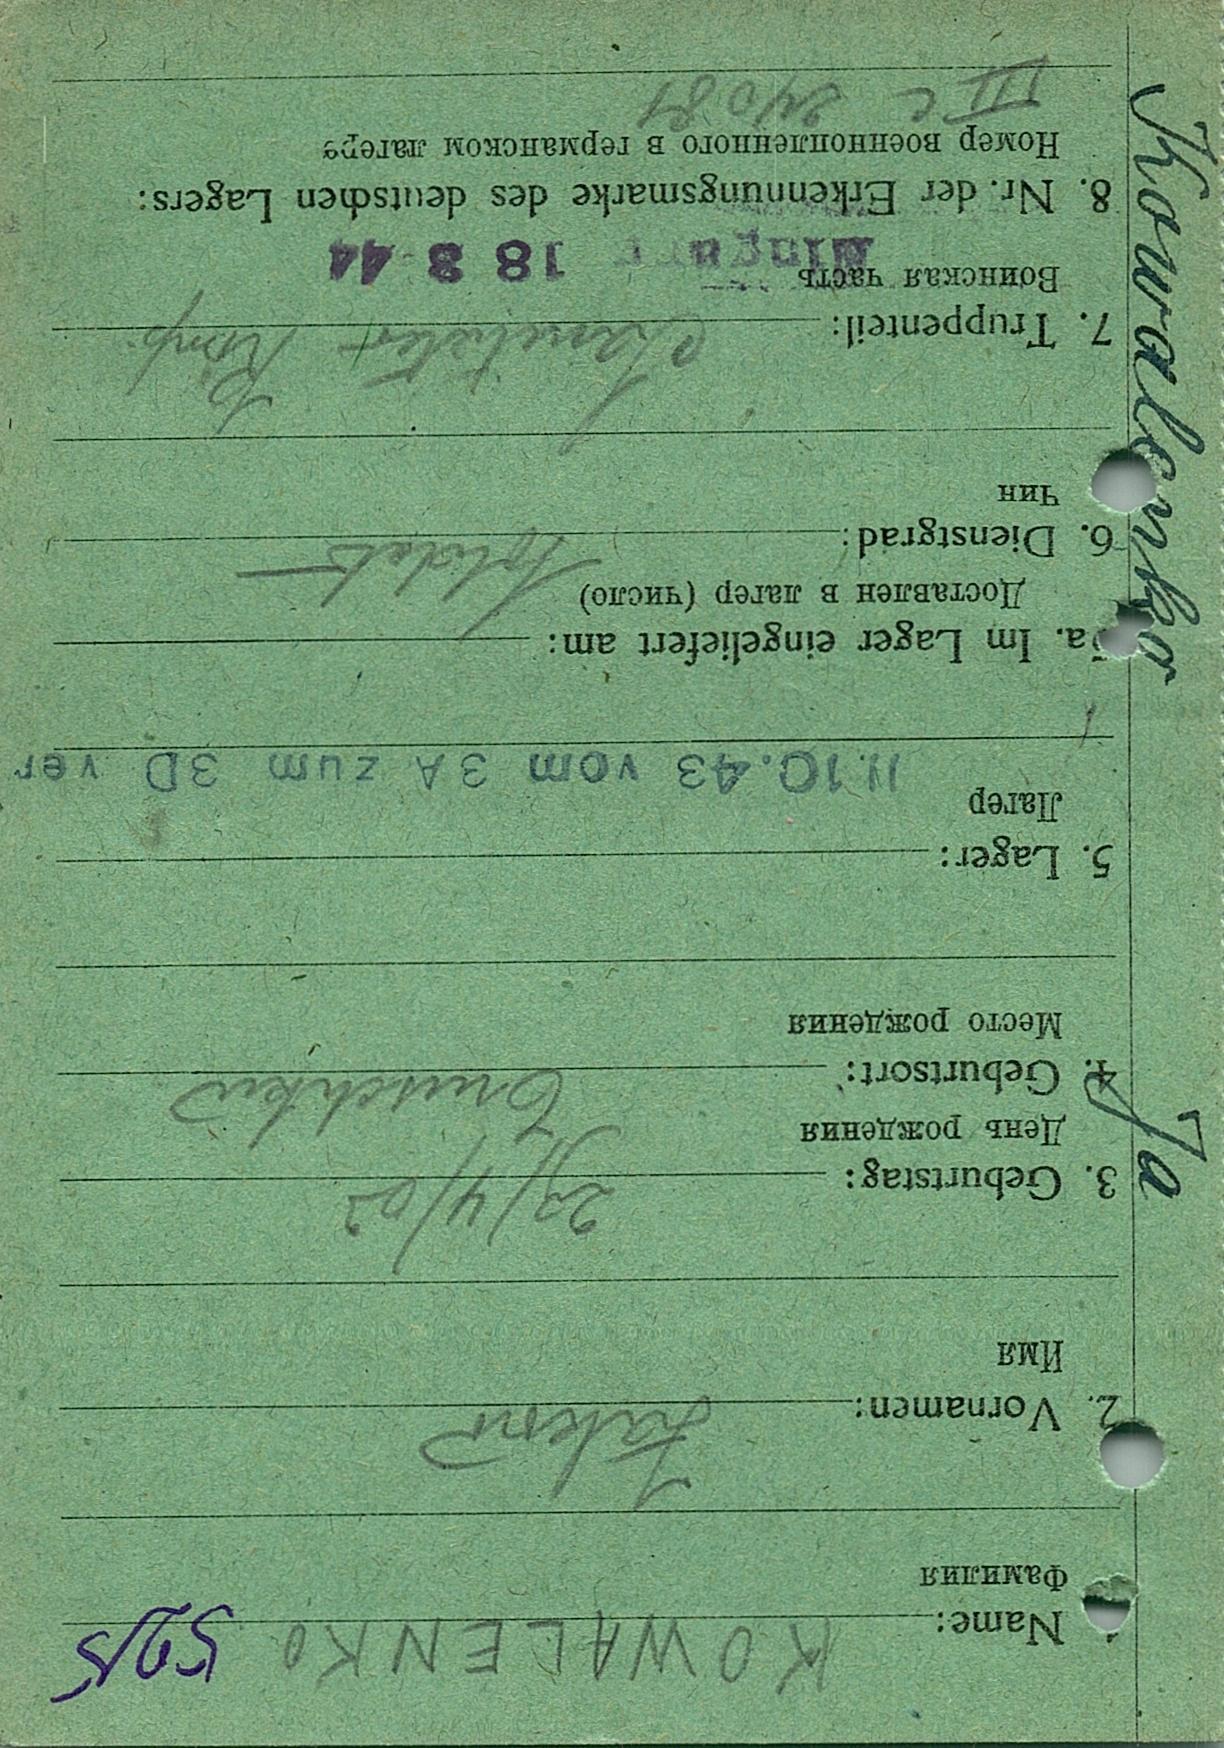 KOWALENKO 5215
1. Name:
Фамилия
2. Vornamen:
Имя
23/4/02
3. Geburtstag:
День рождения
4. Geburtsort:
Место рождения
5. Lager:
Лагер
11.10.43 vom 3A zum 3D ver
5a. Im Lager eingeliefert am:
Доставлен в лагер (число)
Soldat
6. Dienstgrad:
Чин
7. Truppenteil:
Воинская часть
18 3 44
8. Nr. der Erkennungsmarke des deutschen Lagers:
Номер военнопленного в германском лагере
III C 24081
Kowalenko
Ja